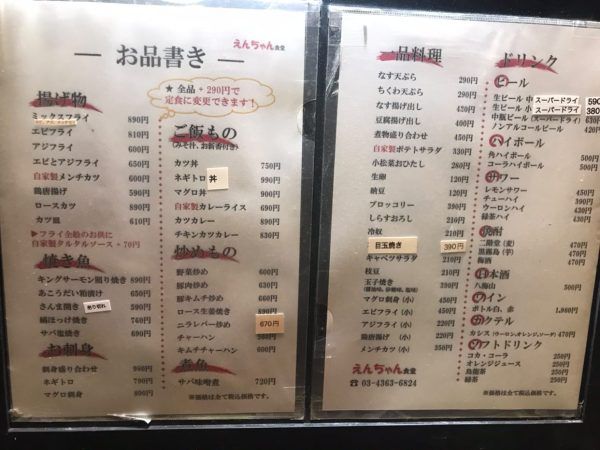 えんちゃん食堂
― お品書き ―
★ 全品 + 290円で
定食に変更できます!
揚げ物
ミックスフライ 890円
エビフライ 810円
アジフライ 600円
エビとアジフライ
自家製メンチカツ
鶏唐揚げ
ロースカツ 890円
カツ皿 610円
▶フライ全般のお供に
自家製タルタルソース + 70円
焼き魚
キングサーモン照り焼き 890円
あこうだい粕漬け 650円
さんま開き 売り切れ
縞ほっけ焼き 690円
サバ塩焼き 590円
お刺身
刺身盛り合わせ
ネギトロ
マグロ刺身
ご飯もの
(みそ汁、お新香付き)
カツ丼 750円
ネギトロ丼 900円
マグロ丼 900円
自家製カレーライス 690円
カツカレー 890円
チキンカツカレー 830円
炒めもの
野菜炒め 600円
豚肉炒め
豚キムチ炒め
ロース生姜焼き
ニラレバー炒め 670円
チャーハン
キムチチャーハン
煮魚
サバ味噌煮 720円
※価格は全て税込価格です。
一品料理
なす天ぷら 290円
ちくわ天ぷら 290円
なす揚げ出し 450円
豆腐揚げ出し
煮物盛り合わせ 450円
自家製ポテトサラダ 330円
小松菜おひたし 280円
生卵
納豆
ブロッコリー
しらすおろし
冷奴 210円
目玉焼き 390円
キャベツサラダ
枝豆
玉子焼き
マグロ刺身(小)
エビフライ(小)
アジフライ(小)
鶏唐揚げ(小)
メンチカツ(小)
えんちゃん食堂
☎ 03-4363-6824
ドリンク
ビール
生ビール 中 スーパードライ 590
生ビール 小 スーパードライ 380
中瓶ビール(スーパードライ) 630円
ノンアルコールビール 420円
ハイボール
角ハイボール 500円
コーラハイボール 500円
サワー
レモンサワー 450円
チューハイ 390円
ウーロンハイ 430円
緑茶ハイ 430円
焼酎
二階堂(麦) 470円
黒霧島(芋) 470円
梅酒 470円
日本酒
八海山 500円
ワイン
ボトル白、赤
カクテル
カシス(ウーロン,オレンジ,ソーダ) 470円
ソフトドリンク
コカ・コーラ 250円
オレンジジュース 250円
烏龍茶 250円
緑茶 250円
※価格は全て税込価格です。